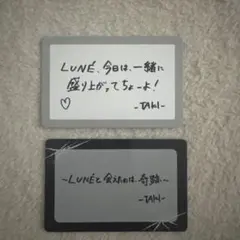 LUNÉ、今日は、一緒に
盛り上がってちょーよ!
♡ -TAKI-
~LUNÉと会えたのは、奇跡~
-TAKI-